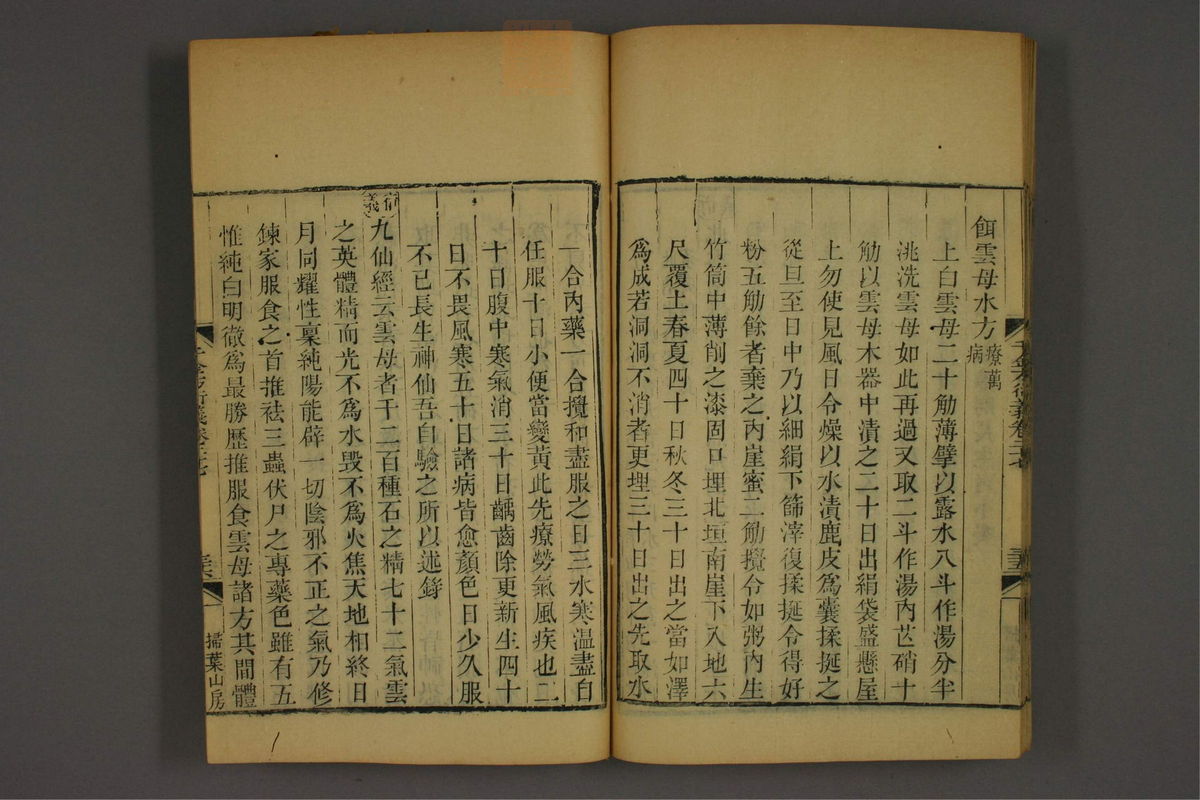 餌雲母水方療萬病
上白雲母二十觔薄擘以露水八斗作湯分半
洮洗雲母如此再過又取二斗作湯內芒硝十
觔以雲母木器中漬之二十日出絹袋盛懸屋
上勿使見風日令燥以水漬鹿皮為囊揉挻之
從旦至日中乃以細絹下篩滓復揉挻令得好
粉五觔餘者棄之內崖蜜二觔攪令如粥內生
竹筒中薄削之漆固口埋北垣南崖下入地六
尺覆土春夏四十日秋冬三十日出之當如澤
為成若洞洞不消者更埋三十日出之先取水
一合內藥一合攪和盡服之日三水寒溫盡自
任服十日小便當變黃此先療勞氣風疾也二
十日腹中寒氣消三十日齲齒除更新生四十
日不畏風寒五十日諸病皆愈顏色日少久服
不已長生神仙吾自驗之所以述錄
衍義
九仙經云雲母者千二百種石之精七十二氣雲
之英體精而光不為水毀不為火焦天地相終日
月同耀性稟純陽能辟一切陰邪不正之氣乃修
鍊家服食之首推祛三蟲伏尸之專藥色雖有五
惟純白明徹為最勝歷推服食雲母諸方其間體
千金方衍義卷二十七
掃葉山房